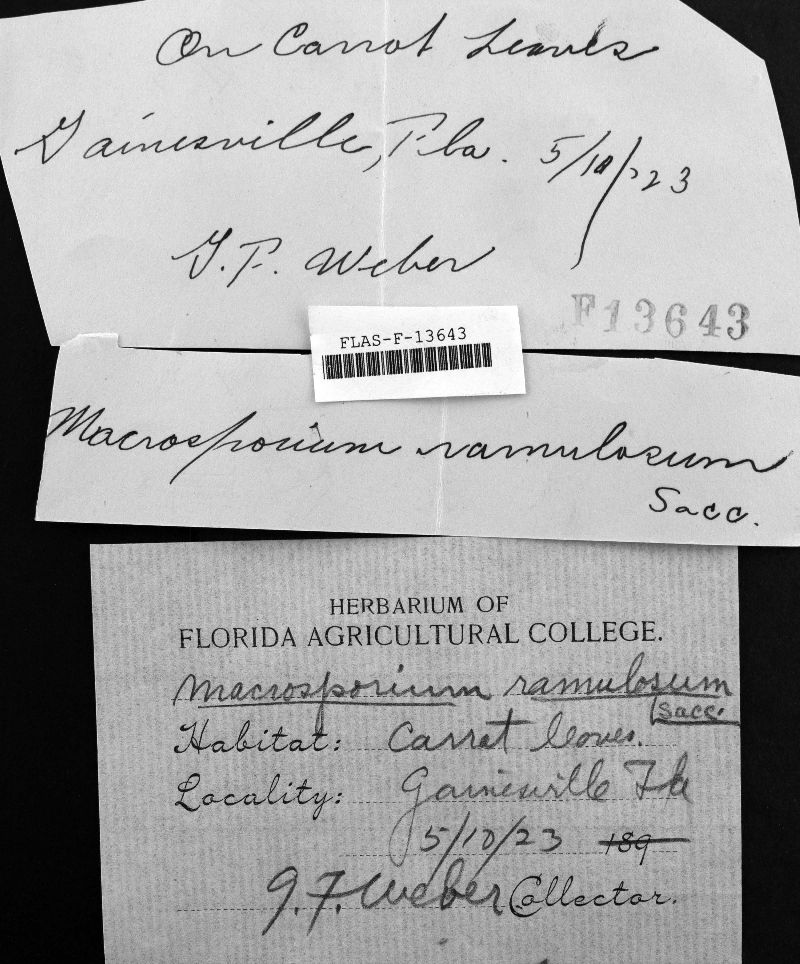 On Carrot Leaves
Gainesville, Fla. 5/10/23
G. F. Weber
F13643
FLAS-F-13643
Macrosporium ramulosum
Sacc.
HERBARIUM OF
FLORIDA AGRICULTURAL COLLEGE.
Macrosporium ramulosum
Sacc.
Habitat: Carrot leaves.
Locality: Gainesville Fla
5/10/23 189
G. F. Weber Collector.